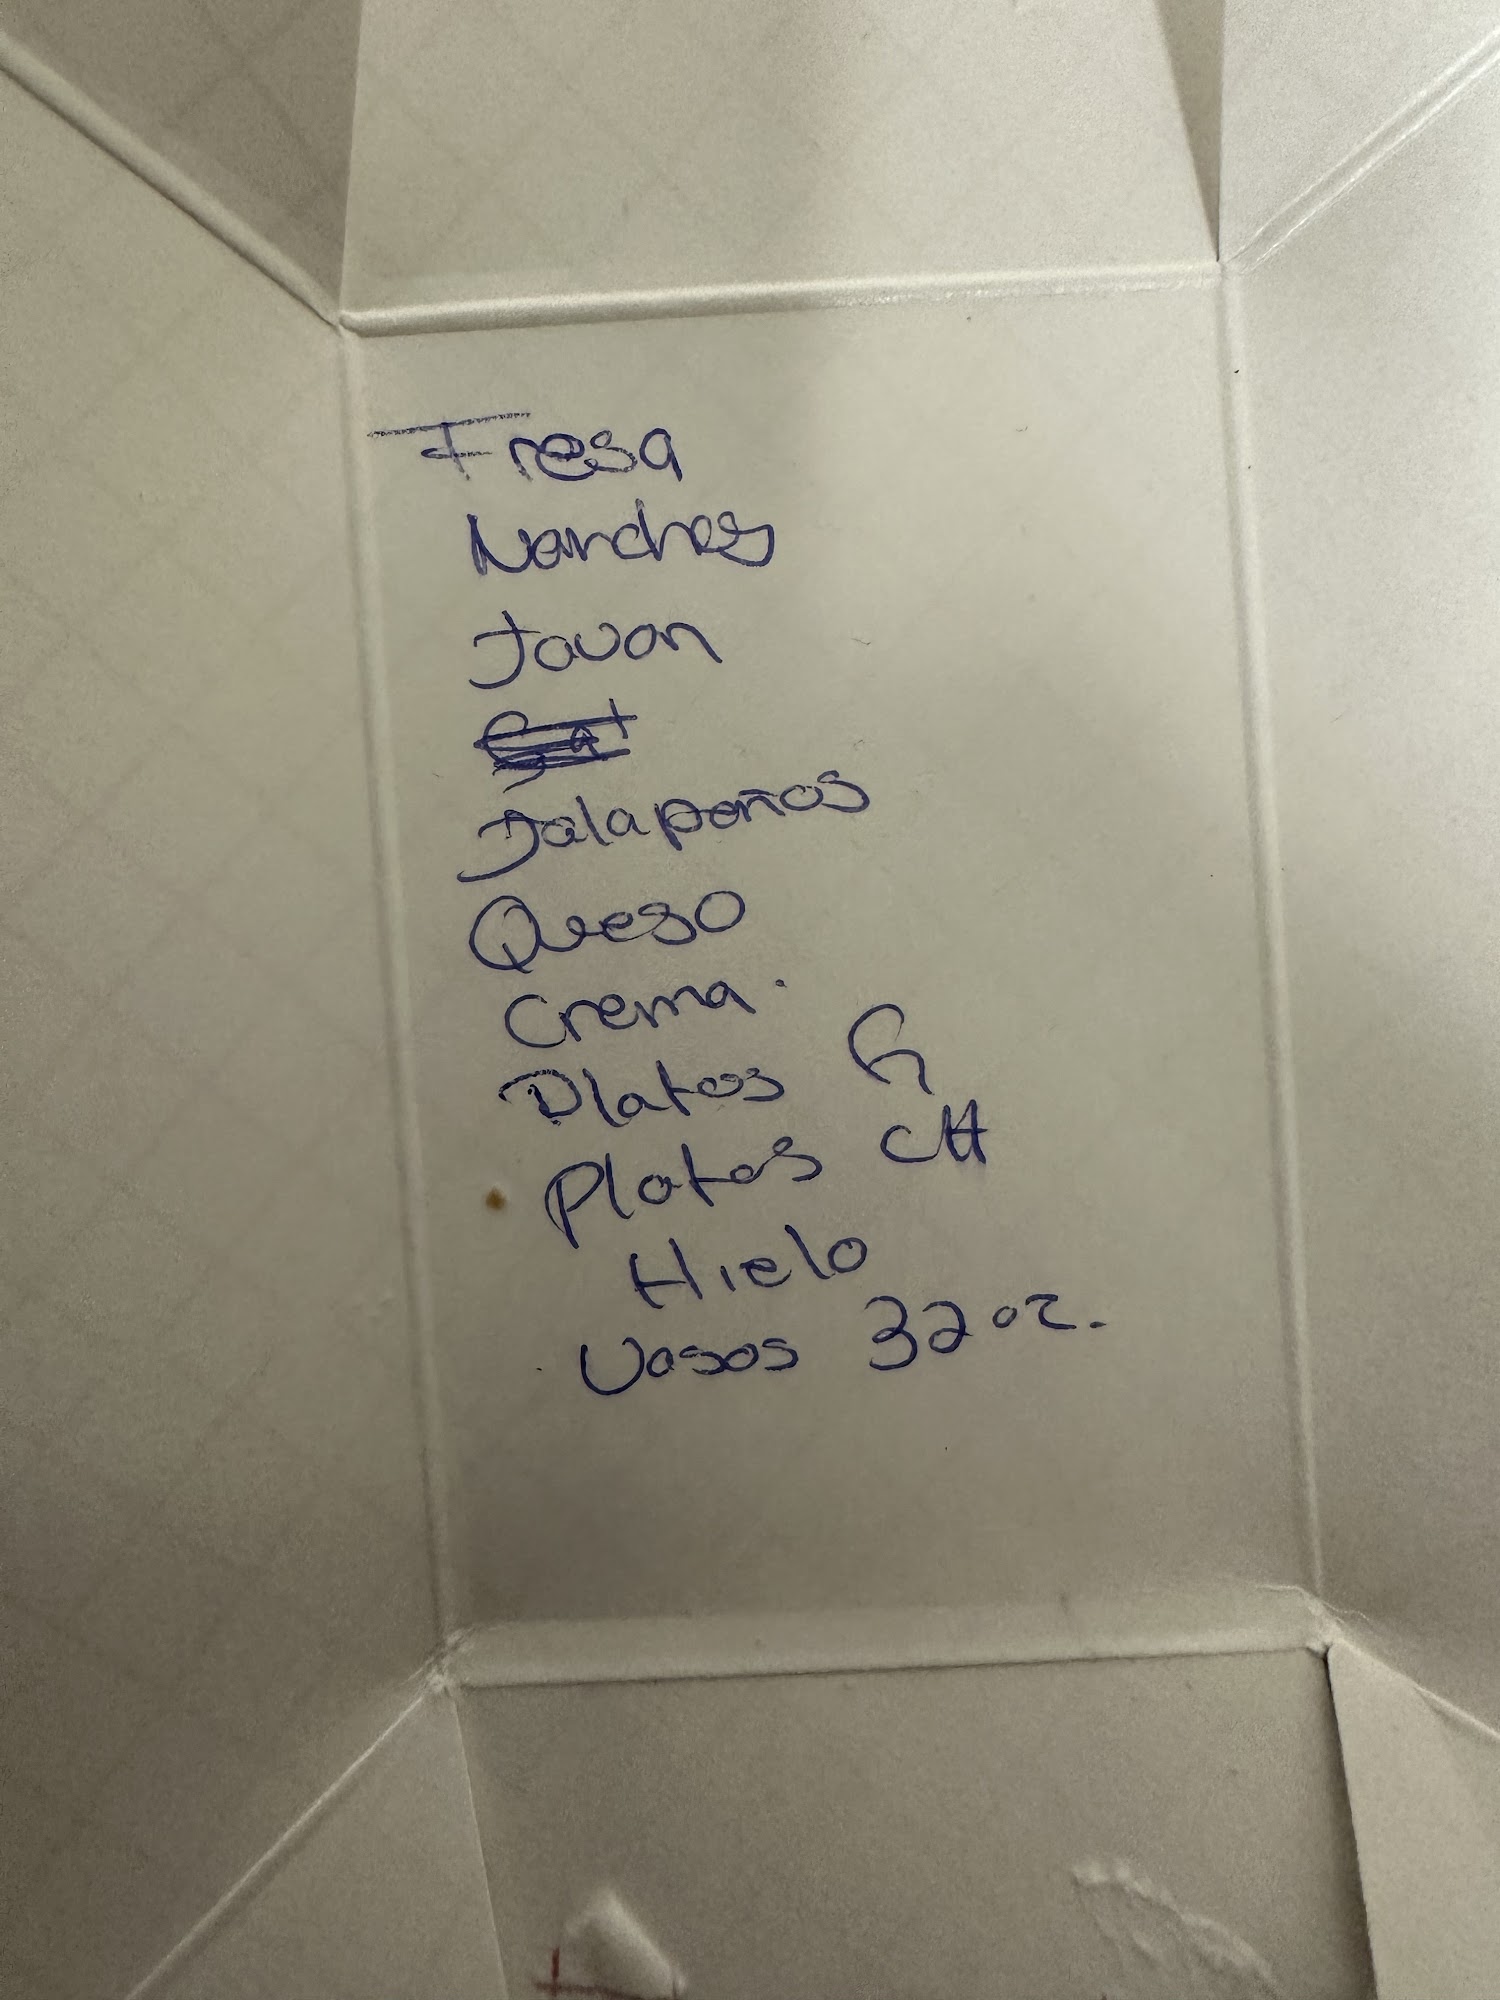 Fresa
Narchos
Javon
Jalapeños
Queso
Crema.
Platos G
Platos CH
Hielo
Vasos 32 oz.